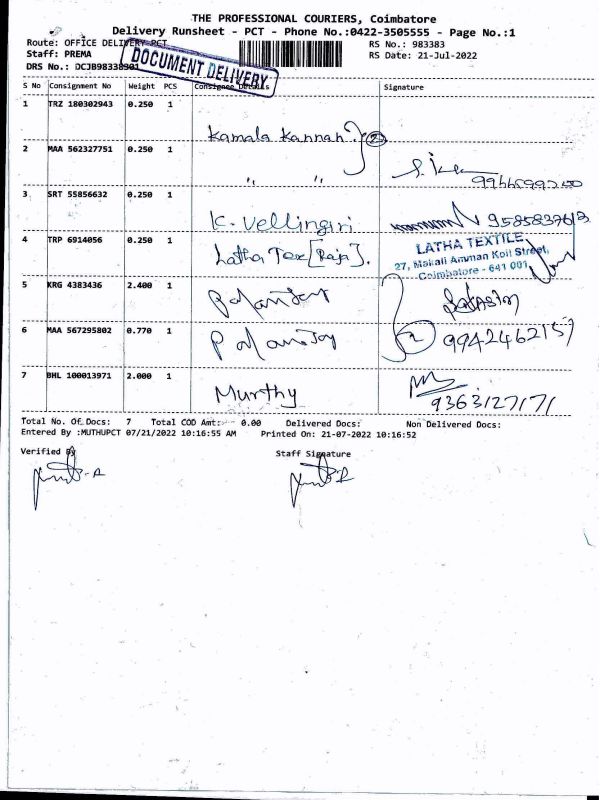 THE PROFESSIONAL COURIERS, Coimbatore
Delivery Runsheet - PCT - Phone No.:0422-3505555 - Page No.:1
Route: OFFICE DELIVERY PCT
RS No.: 983383
Staff: PREMA
RS Date: 21-Jul-2022
DRS No.: DCJB98338301
DOCUMENT DELIVERY
S No Consignment No Weight PCS Consignee Details Signature
1 TRZ 180302943 0.250 1
Kamala Kannan 2
2 MAA 562327751 0.250 1
" "
3 SRT 55856632 0.250 1
K. Vellingiri 9585837613
4 TRP 6914056 0.250 1
Latha Tex [Raja].
LATHA TEXTILE
27, Makali Amman Koil Street,
Coimbatore - 641 001.
5 KRG 4383436 2.400 1
6 MAA 567295802 0.770 1
2 9942462157
7 BHL 100013971 2.000 1
Murthy
9363127171
Total No. Of Docs: 7 Total COD Amt: 0.00 Delivered Docs: Non Delivered Docs:
Entered By :MUTHUPCT 07/21/2022 10:16:55 AM Printed On: 21-07-2022 10:16:52
Verified By Staff Signature